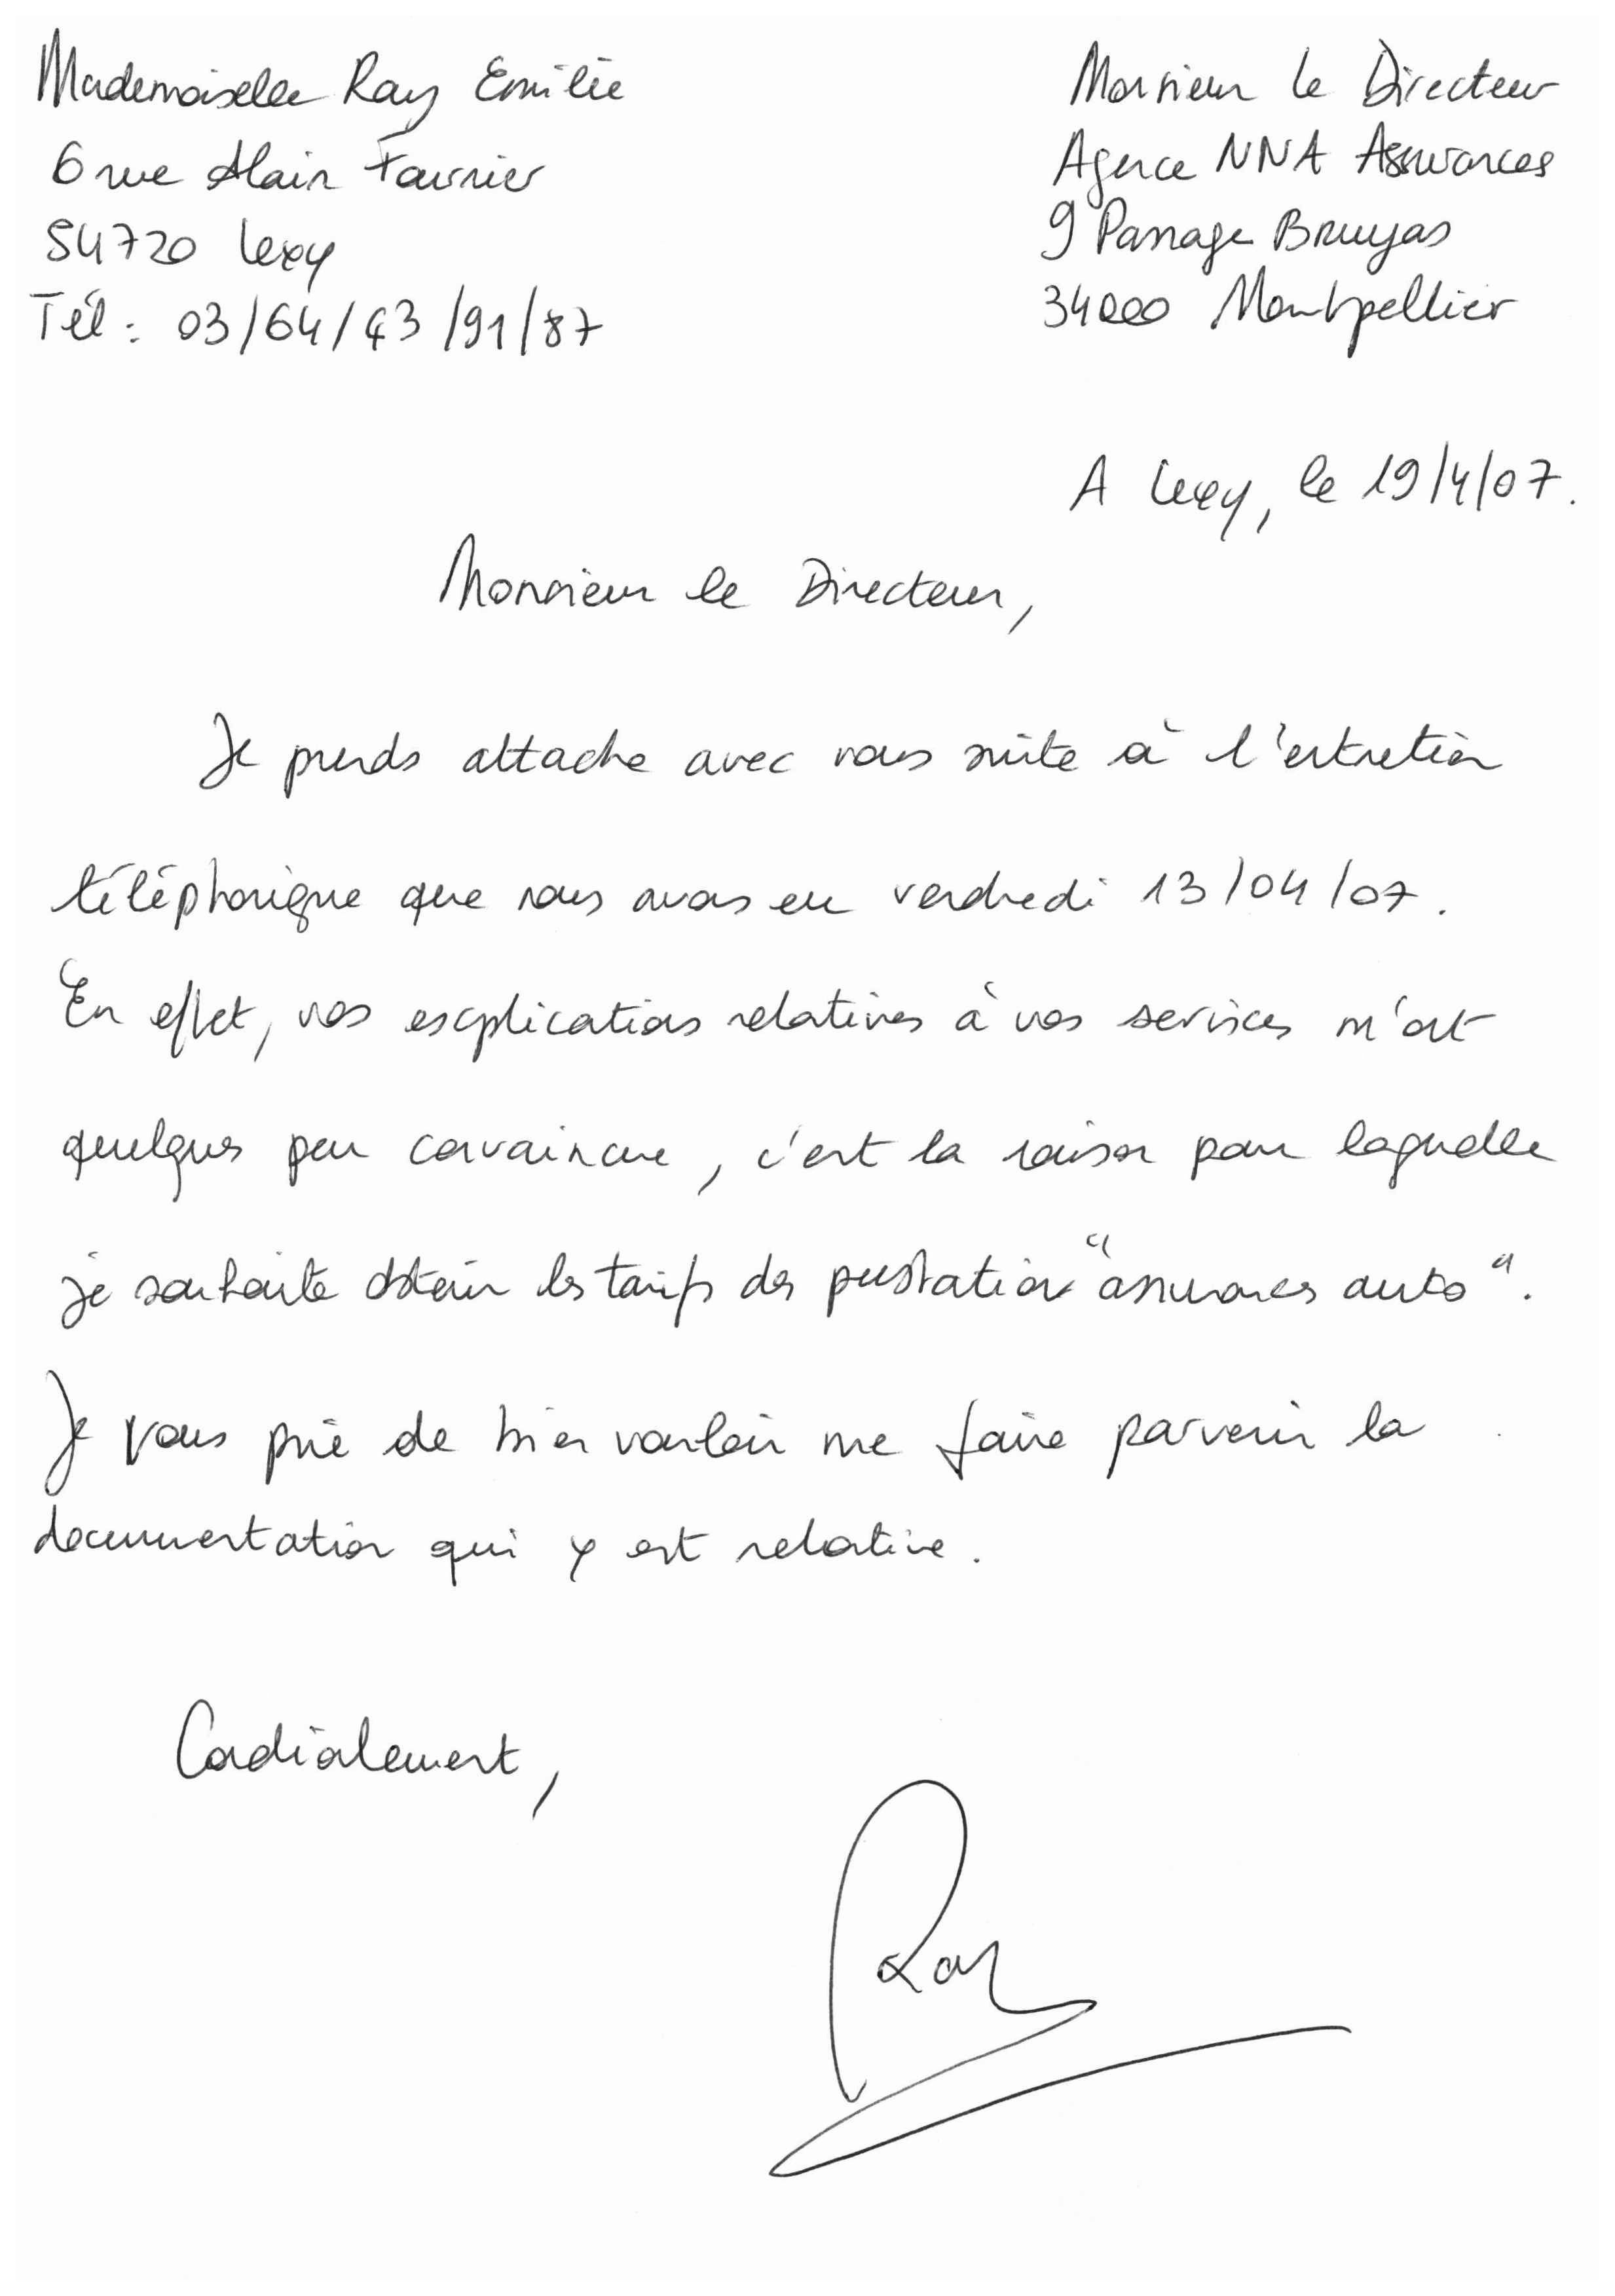 Mademoiselle Ray Emilie
6 rue Alain Fournier
54720 Lexy
Tél : 03/64/43/91/87
Monsieur le Directeur
Agence NNA Assurances
9 Passage Bruyas
34000 Montpellier
A Lexy, le 19/4/07.
Monsieur le Directeur,
Je prends attache avec vous suite à l'entretien
téléphonique que nous avons eu vendredi 13/04/07.
En effet, vos explications relatives à vos services m'ont
quelques peu convaincue, c'est la raison pour laquelle
je souhaite obtenir les tarifs des prestation "assurances auto".
Je vous prie de bien vouloir me faire parvenir la
documentation qui y est relative.
Cordialement,
Ray